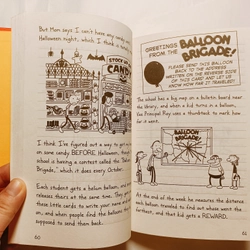 But Mom says I can't have any candy
Halloween night, which I think is
STOCK UP
CANDY
I think I've figured out a way to get my
on some candy BEFORE Halloween, though
school is having a contest called the "Balloon
Brigade," which it does every October.
Each student gets a helium balloon, and
releases theirs at the same time. They give
these little cards to write your name and
on, and when people find the balloons
supposed to send them back.
60
GREETINGS FROM THE
BALLOON
BRIGADE!
PLEASE SEND THIS BALLOON
BACK TO THE ADDRESS
WRITTEN ON THE REVERSE SIDE
OF THIS CARD AND LET US
KNOW HOW FAR IT TRAVELED!
The school has a big map on a bulletin board near
the library, and when a kid turns in a balloon,
Vice Principal Roy uses a thumbtack to mark how
far it went.
BALLOON
At the end of the week he measures the distance
each balloon traveled to find out whose went the
farthest, and that kid gets a REWARD.